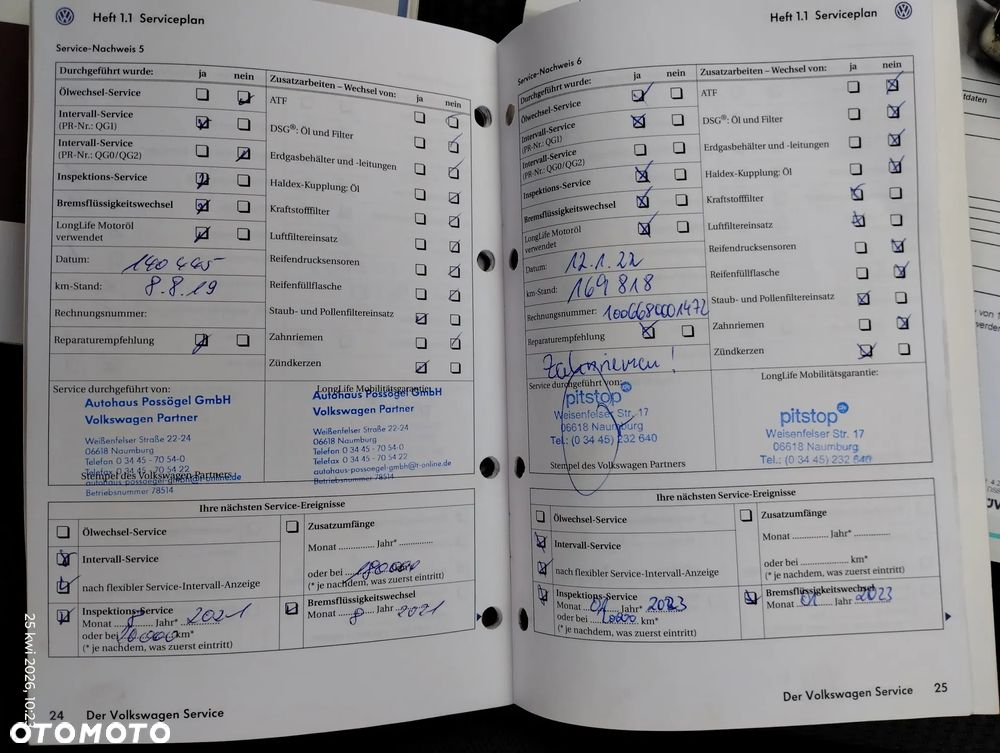 Heft 1.1 Serviceplan
Service-Nachweis 5
Durchgeführt wurde: ja nein
Ölwechsel-Service
Intervall-Service
(PR-Nr.: QG1)
Intervall-Service
(PR-Nr.: QG0/QG2)
Inspektions-Service
Bremsflüssigkeitswechsel
LongLife Motoröl
verwendet
Datum: 140 445
km-Stand: 8.8.19
Rechnungsnummer:
Reparaturempfehlung
Zusatzarbeiten – Wechsel von: ja nein
ATF
DSG®: Öl und Filter
Erdgasbehälter und -leitungen
Haldex-Kupplung: Öl
Kraftstofffilter
Luftfiltereinsatz
Reifendrucksensoren
Reifenfüllflasche
Staub- und Pollenfiltereinsatz
Zahnriemen
Zündkerzen
Service durchgeführt von:
Autohaus Possögel GmbH
Volkswagen Partner
Weißenfelser Straße 22-24
06618 Naumburg
Telefon 0 34 45 - 70 54-0
Telefax 0 34 45 - 70 54 22
autohaus-possoegel-gmbh@t-online.de
Betriebsnummer 78514
Stempel des Volkswagen Partners
LongLife Mobilitätsgarantie:
Autohaus Possögel GmbH
Volkswagen Partner
Weißenfelser Straße 22-24
06618 Naumburg
Telefon 0 34 45 - 70 54-0
Telefax 0 34 45 - 70 54 22
autohaus-possoegel-gmbh@t-online.de
Betriebsnummer 78514
Ihre nächsten Service-Ereignisse
Ölwechsel-Service
Intervall-Service
nach flexibler Service-Intervall-Anzeige
Inspektions-Service
Monat 8 Jahr* 2021
oder bei km*
(* je nachdem, was zuerst eintritt)
Zusatzumfänge
Monat .............. Jahr* ..............
oder bei 180000
(* je nachdem, was zuerst eintritt)
Bremsflüssigkeitswechsel
Monat 8 Jahr 2021
24 Der Volkswagen Service
Heft 1.1 Serviceplan
Service-Nachweis 6
Durchgeführt wurde: ja nein
Ölwechsel-Service
Intervall-Service
(PR-Nr.: QG1)
Intervall-Service
(PR-Nr.: QG0/QG2)
Inspektions-Service
Bremsflüssigkeitswechsel
LongLife Motoröl
verwendet
Datum: 12.1.22
km-Stand: 169 818
Rechnungsnummer: 1006680001472
Reparaturempfehlung
Zahnriemen!
Zusatzarbeiten – Wechsel von: ja nein
ATF
DSG®: Öl und Filter
Erdgasbehälter und -leitungen
Haldex-Kupplung: Öl
Kraftstofffilter
Luftfiltereinsatz
Reifendrucksensoren
Reifenfüllflasche
Staub- und Pollenfiltereinsatz
Zahnriemen
Zündkerzen
Service durchgeführt von:
pitstop
Weisenfelser Str. 17
06618 Naumburg
Tel.: (0 34 45) 232 640
Stempel des Volkswagen Partners
LongLife Mobilitätsgarantie:
pitstop
Weisenfelser Str. 17
06618 Naumburg
Tel.: (0 34 45) 232 640
Ihre nächsten Service-Ereignisse
Ölwechsel-Service
Intervall-Service
nach flexibler Service-Intervall-Anzeige
Inspektions-Service
Monat 01 Jahr* 2023
oder bei km*
(* je nachdem, was zuerst eintritt)
Zusatzumfänge
Monat .............. Jahr* ..............
oder bei .................... km*
(* je nachdem, was zuerst eintritt)
Bremsflüssigkeitswechsel
Monat 01 Jahr 2023
Der Volkswagen Service 25
25 kwi 2026, 10:23
OTOMOTO